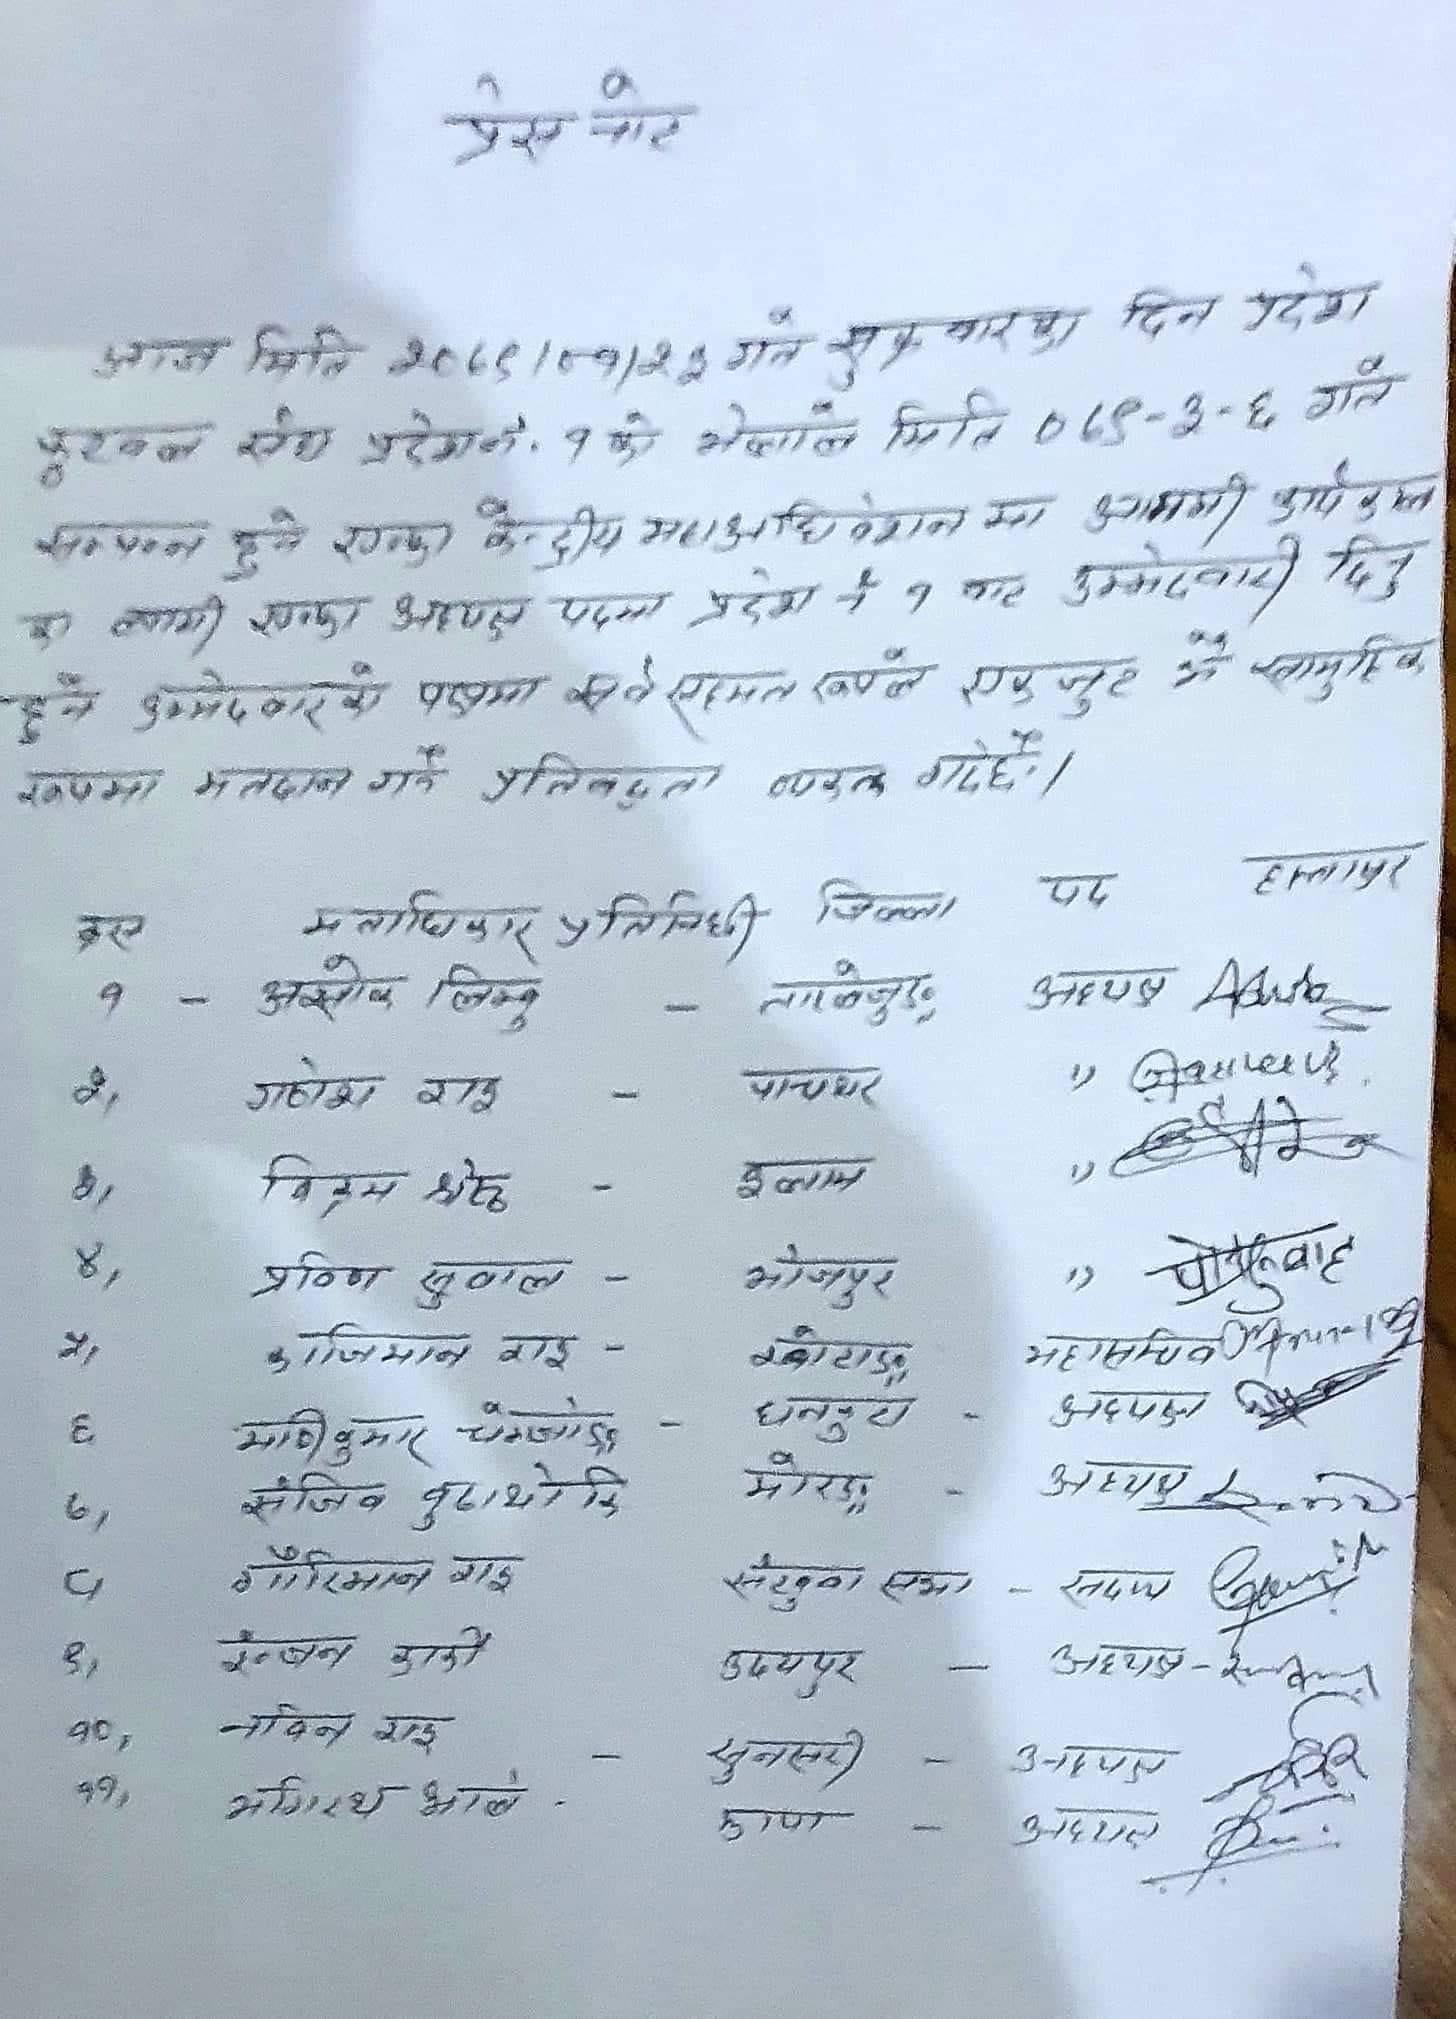 प्रेस नोट
आज मिति २०७९/०१/२३ गते सुक्रवारका दिन प्रदेश
फुटवल संघ प्रदेश नं. १ को भेलाले मिति ०७९-३-६ गते
सम्पन्न हुने एन्फा केन्द्रीय महाअधिवेशन मा आगामी कार्यकाल
का लागी एन्फा अध्यक्ष पदमा प्रदेश नं १ बाट उम्मेदवारी दिनु
हुने उम्मेदवारको पक्षमा सर्वसहमत रुपले एकजुट भै सामुहिक
रुपमा मतदान गर्ने प्रतिबद्धता व्यक्त गर्दछौं।
क्रस मताधिकार प्रतिनिधी जिल्ला पद हस्ताक्षर
१ - असोक लिम्बु - ताप्लेजुङ अध्यक्ष
२, गणेश राइ - पाचथर "
३, विक्रम श्रेष्ठ - इलाम "
४, प्रविण सुवाल - भोजपुर "
५, काजिमान राइ - खोटाङ महासचिव
६ मणीकुमार चेम्जोङ - धनकुटा - अध्यक्ष
७, संजिव बुढाथोकि मोरङ - अध्यक्ष
८ गौरिमान राइ संखुवा सभा - सदस्य
९, रन्जन कार्की उदयपुर - अध्यक्ष -
१०, नविन राइ - सुनसरी - अध्यक्ष
११, भगिरथ - झापा - अध्यक्ष